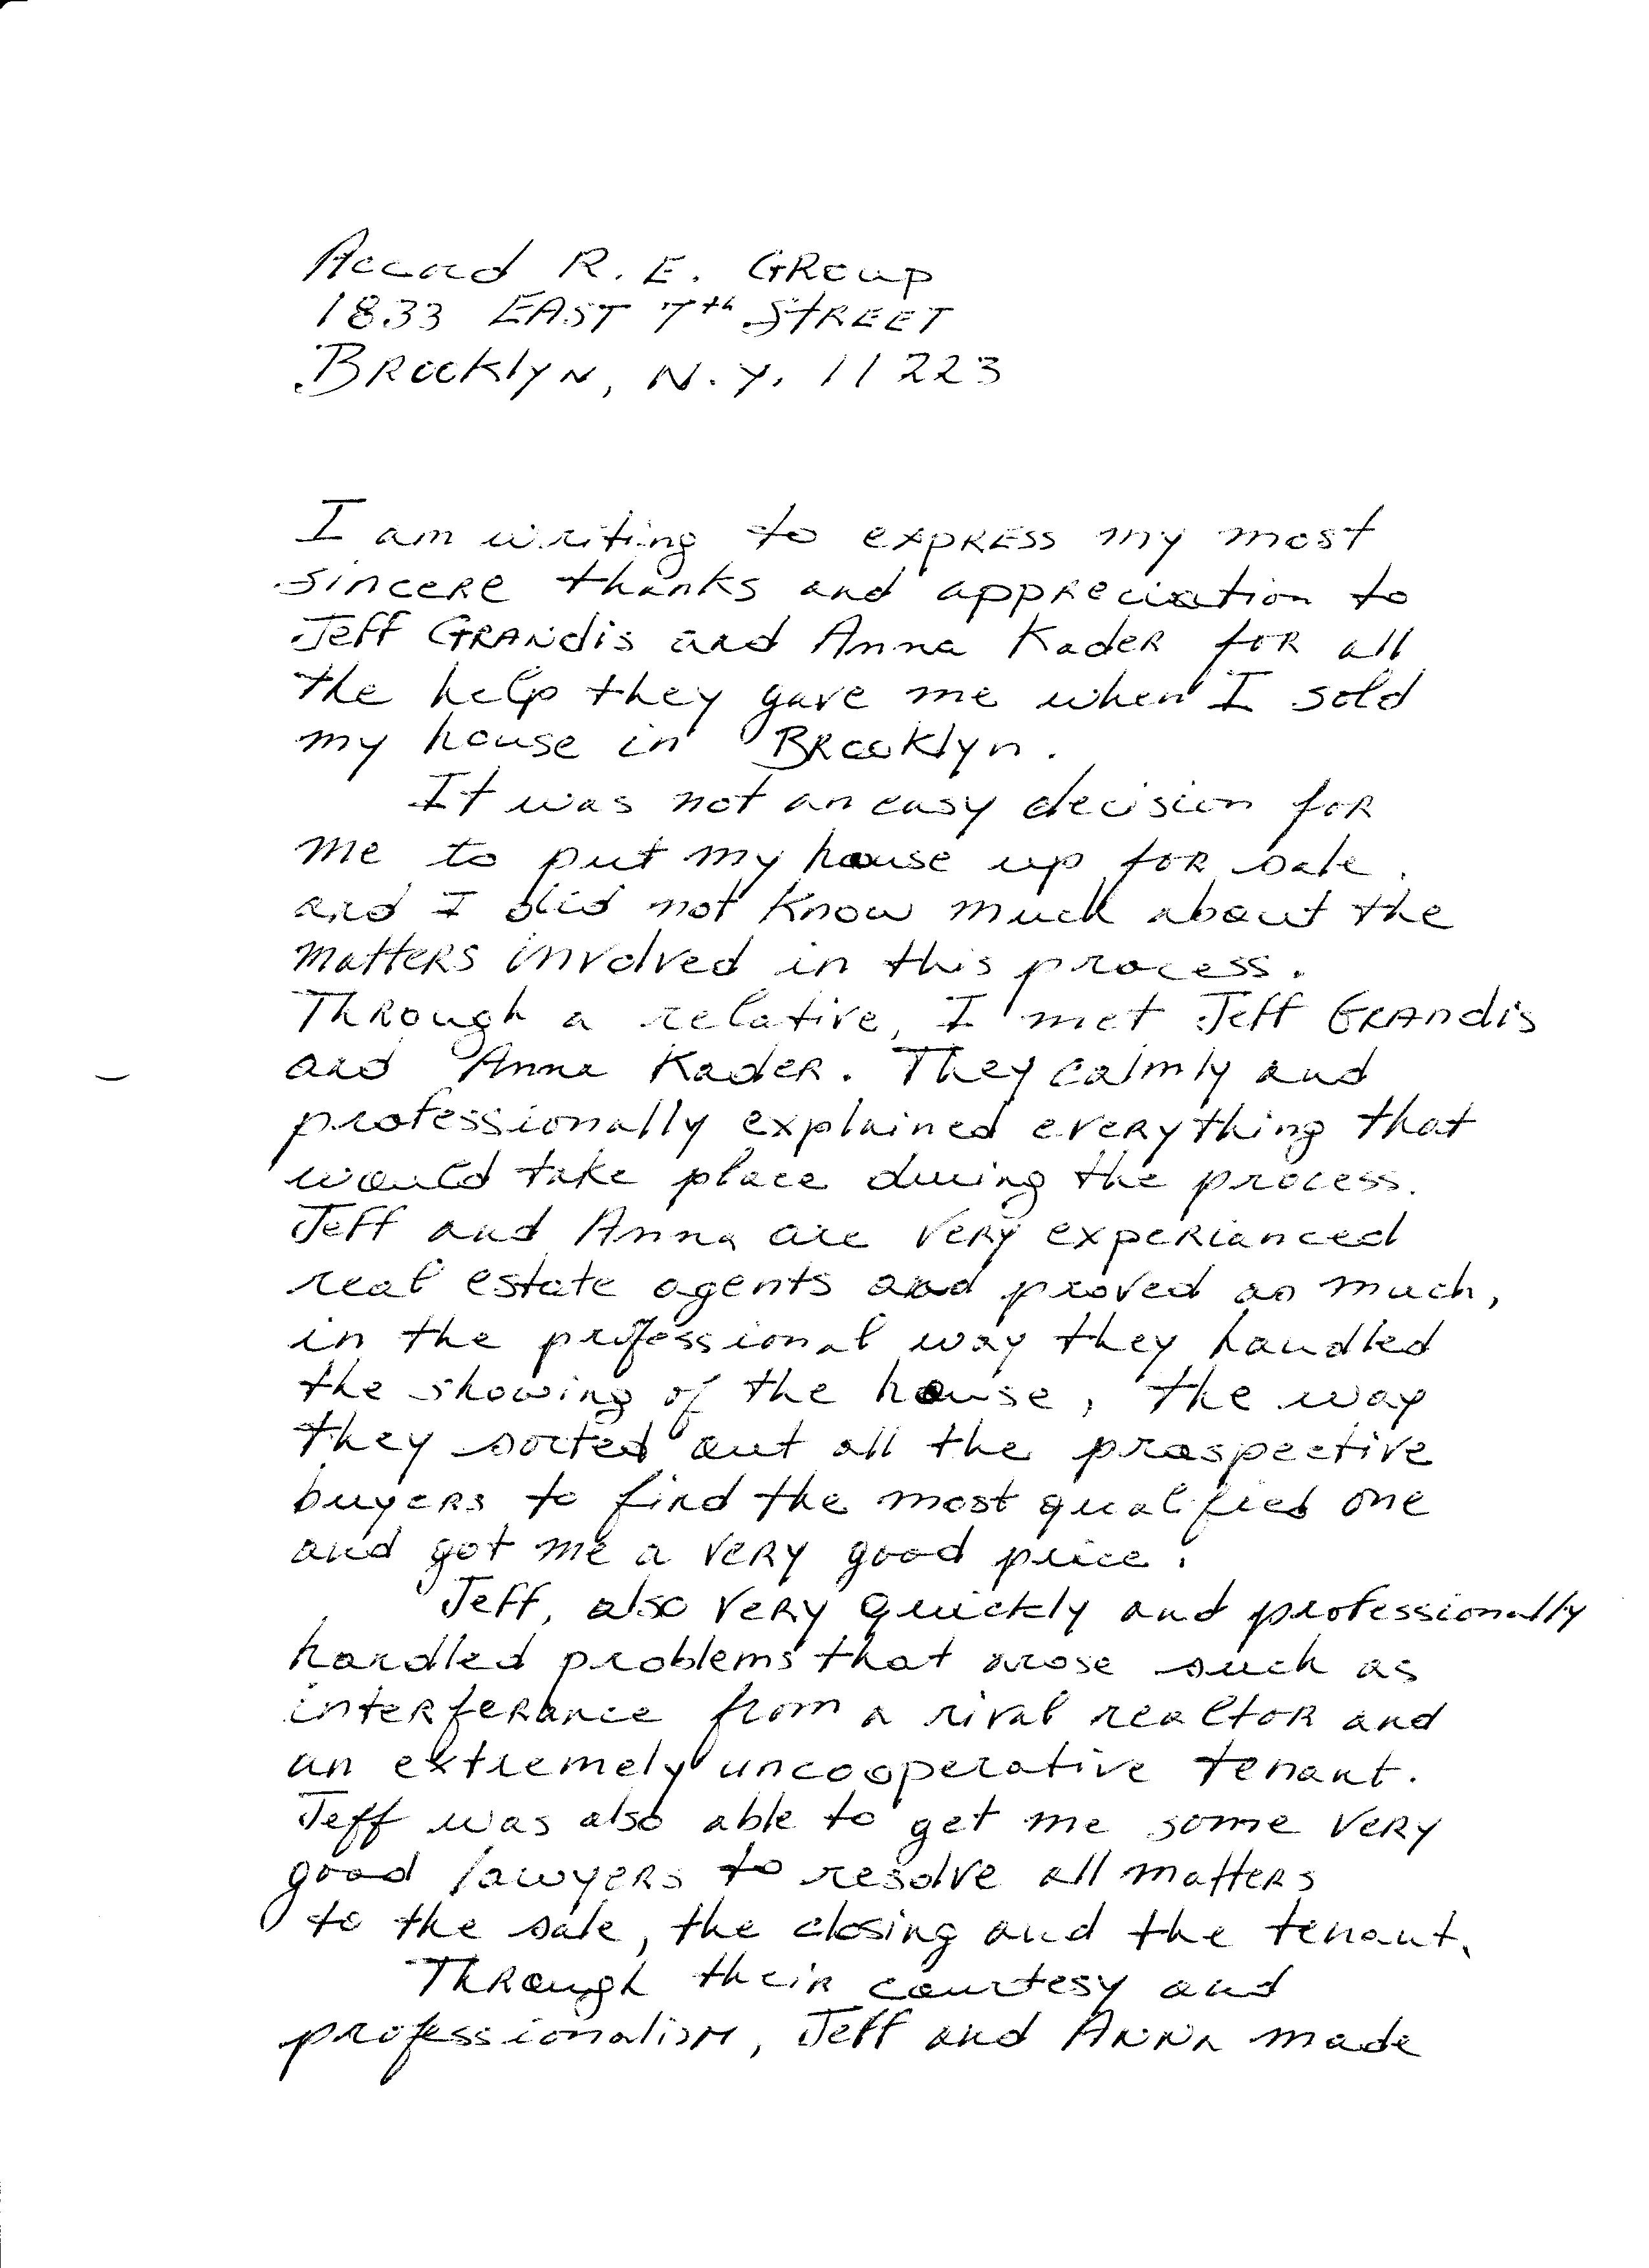 Accord R. E. Group
1833 East 7th Street
Brooklyn, N.Y. 11223
I am writing to express my most
sincere thanks and appreciation to
Jeff Grandis and Anna Kader for all
the help they gave me when I sold
my house in Brooklyn.
It was not an easy decision for
me to put my house up for sale.
and I did not know much about the
matters involved in this process.
Through a relative, I met Jeff Grandis
and Anna Kader. They calmly and
professionally explained everything that
would take place during the process.
Jeff and Anna are very experianced
real estate agents and proved as much,
in the professional way they handled
the showing of the house, the way
they sorted out all the prospective
buyers to find the most qualified one
and got me a very good price.
Jeff, also very quickly and professionally
handled problems that arose such as
interferance from a rival realtor and
an extremely uncooperative tenant.
Jeff was also able to get me some very
good lawyers to resolve all matters
to the sale, the closing and the tenant.
Through their courtesy and
professionalism, Jeff and Anna made